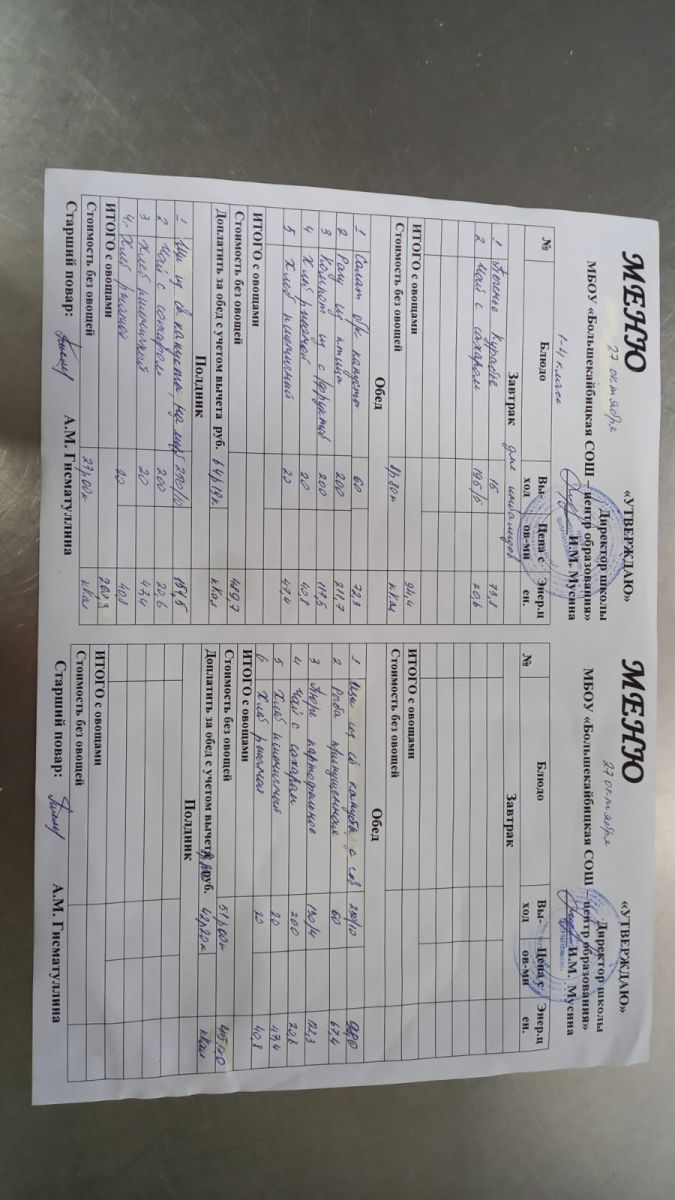 «УТВЕРЖДАЮ»
Директор школы
МБОУ «Большекайбицкая СОШ - центр образования»
И.М. Мусина
МЕНЮ
27 октября
1-4 класс
№ Блюдо Вы-ход Цена с ов-ми Энер.ц ен.
Завтрак для инвалидов
1 Печенье Курабье 15 73,8
2 Чай с сахаром 195/5 20,6
ИТОГО с овощами 94,4
Стоимость без овощей 8р80к кКал
Обед
1 Салат капусты 60 72,3
2 Рагу из птицы 200 211,7
3 Компот из с фруктов 200 117,5
4 Хлеб ржаной 20 40,8
5 Хлеб пшеничный 20 47,4
ИТОГО с овощами
Стоимость без овощей 489,7
Доплатить за обед с учетом вычета руб. 64р19к кКал
Полдник
1 Щи из св капусты, на м/б 250/10
2 Чай с сахаром 200 20,6
3 Хлеб пшеничный 20 47,4
4. Хлеб ржаной 20 40,8
ИТОГО с овощами
Стоимость без овощей 27р00к кКал
Старший повар: А.М. Гисматуллина
«УТВЕРЖДАЮ»
Директор школы
МБОУ «Большекайбицкая СОШ - центр образования»
И.М. Мусина
МЕНЮ
27 октября
№ Блюдо Вы-ход Цена с ов-ми Энер.ц ен.
Завтрак
ИТОГО с овощами
Стоимость без овощей
Обед
1 Щи из св капусты с 250/10
2 Рыба припущенная 60 67,4
3 Пюре картофельное 130/4 122,3
4 Чай с сахаром 200 20,6
5 Хлеб пшеничный 20 47,4
6 Хлеб ржаной 20 40,8
ИТОГО с овощами
Стоимость без овощей 51р00к
Доплатить за обед с учетом вычета руб. 42р20к кКал
Полдник
ИТОГО с овощами
Стоимость без овощей
Старший повар: А.М. Гисматуллина